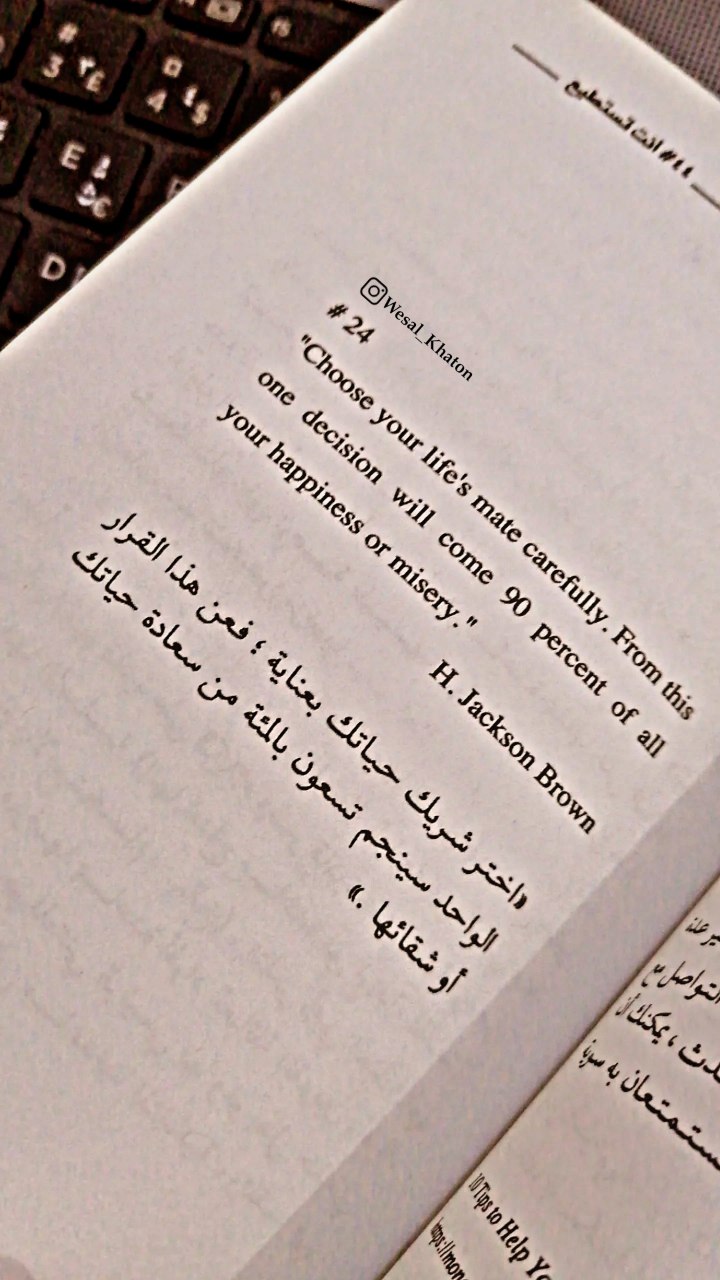 #٤٤ أنت تستطيع
Wesal_Khaton
# 24
"Choose your life's mate carefully. From this
one decision will come 90 percent of all
your happiness or misery."
H. Jackson Brown
«اختر شريك حياتك بعناية ؛ فعن هذا القرار
الواحد سينجم تسعون بالمئة من سعادة حياتك
أو شقائها .»
التواصل مع
يمكنك أن
ستمتعان به سويًا
10 Tips to Help Yo
https://mon
# 3 ٣ £
4 ٤ $
E
D